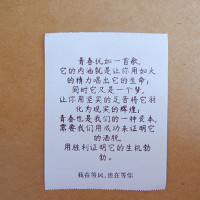 青春犹如一首歌，
它的内涵就是让你用如火
的精力唱出它的生命；
同时它又是一个梦，
让你用坚实的足音将它羽
化为现实的辉煌；
青春也是我们的一种资本，
需要我们用成功来证明它
的洒脱，
用胜利证明它的生机勃
勃。
我在等风，也在等你